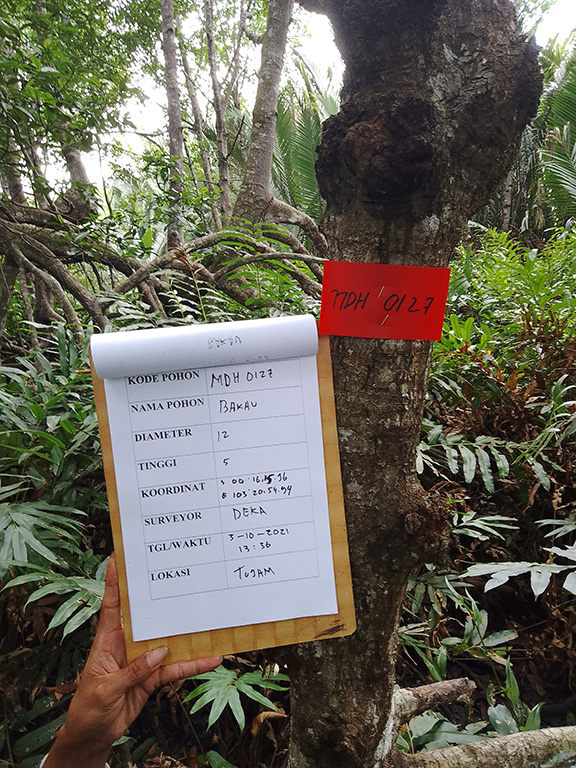 MDH 0127
KODE POHON MDH 0127
NAMA POHON BAKAU
DIAMETER 12
TINGGI 5
KOORDINAT S 00°16.15.36
E 103°20.54.94
SURVEYOR DEKA
TGL/WAKTU 3-10-2021
13:36
LOKASI